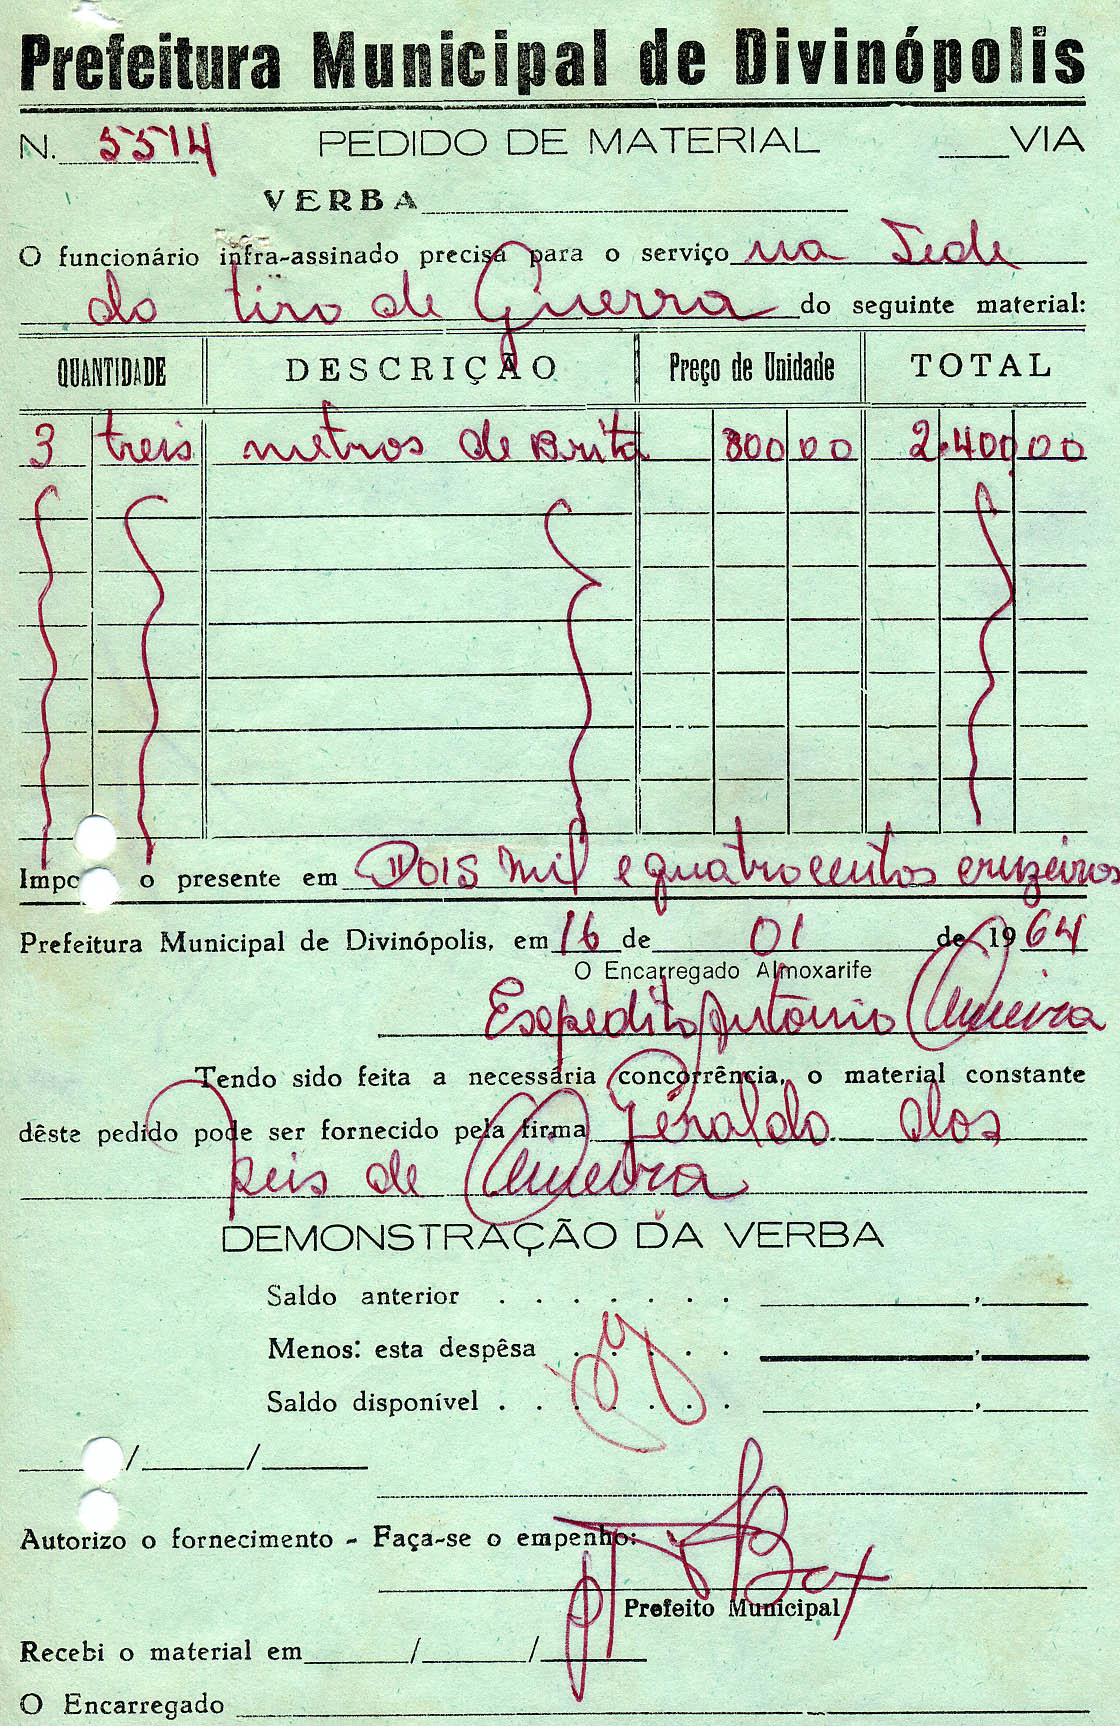 Prefeitura Municipal de Divinópolis
N. 5514 PEDIDO DE MATERIAL ____VIA
VERBA
O funcionário infra-assinado precisa para o serviço na Sede
do tiro de Guerra do seguinte material:
QUANTIDADE DESCRIÇÃO Preço de Unidade TOTAL
3 treis metros de Brita 800 00 2.400 00
Impo o presente em Dois mil e quatrocentos cruzeiros
Prefeitura Municipal de Divinópolis, em 16 de 01 de 1964
O Encarregado Almoxarife
Esepedito Antonio Oliveira
Tendo sido feita a necessária concorrência, o material constante
dêste pedido pode ser fornecido pela firma Geraldo dos
Reis de Oliveira
DEMONSTRAÇÃO DA VERBA
Saldo anterior . . . . . . . ,
Menos: esta despêsa . . . . . . ,
Saldo disponível . . . . . . . ,
/ /
Autorizo o fornecimento - Faça-se o empenho:
Prefeito Municipal
Recebi o material em / /
O Encarregado